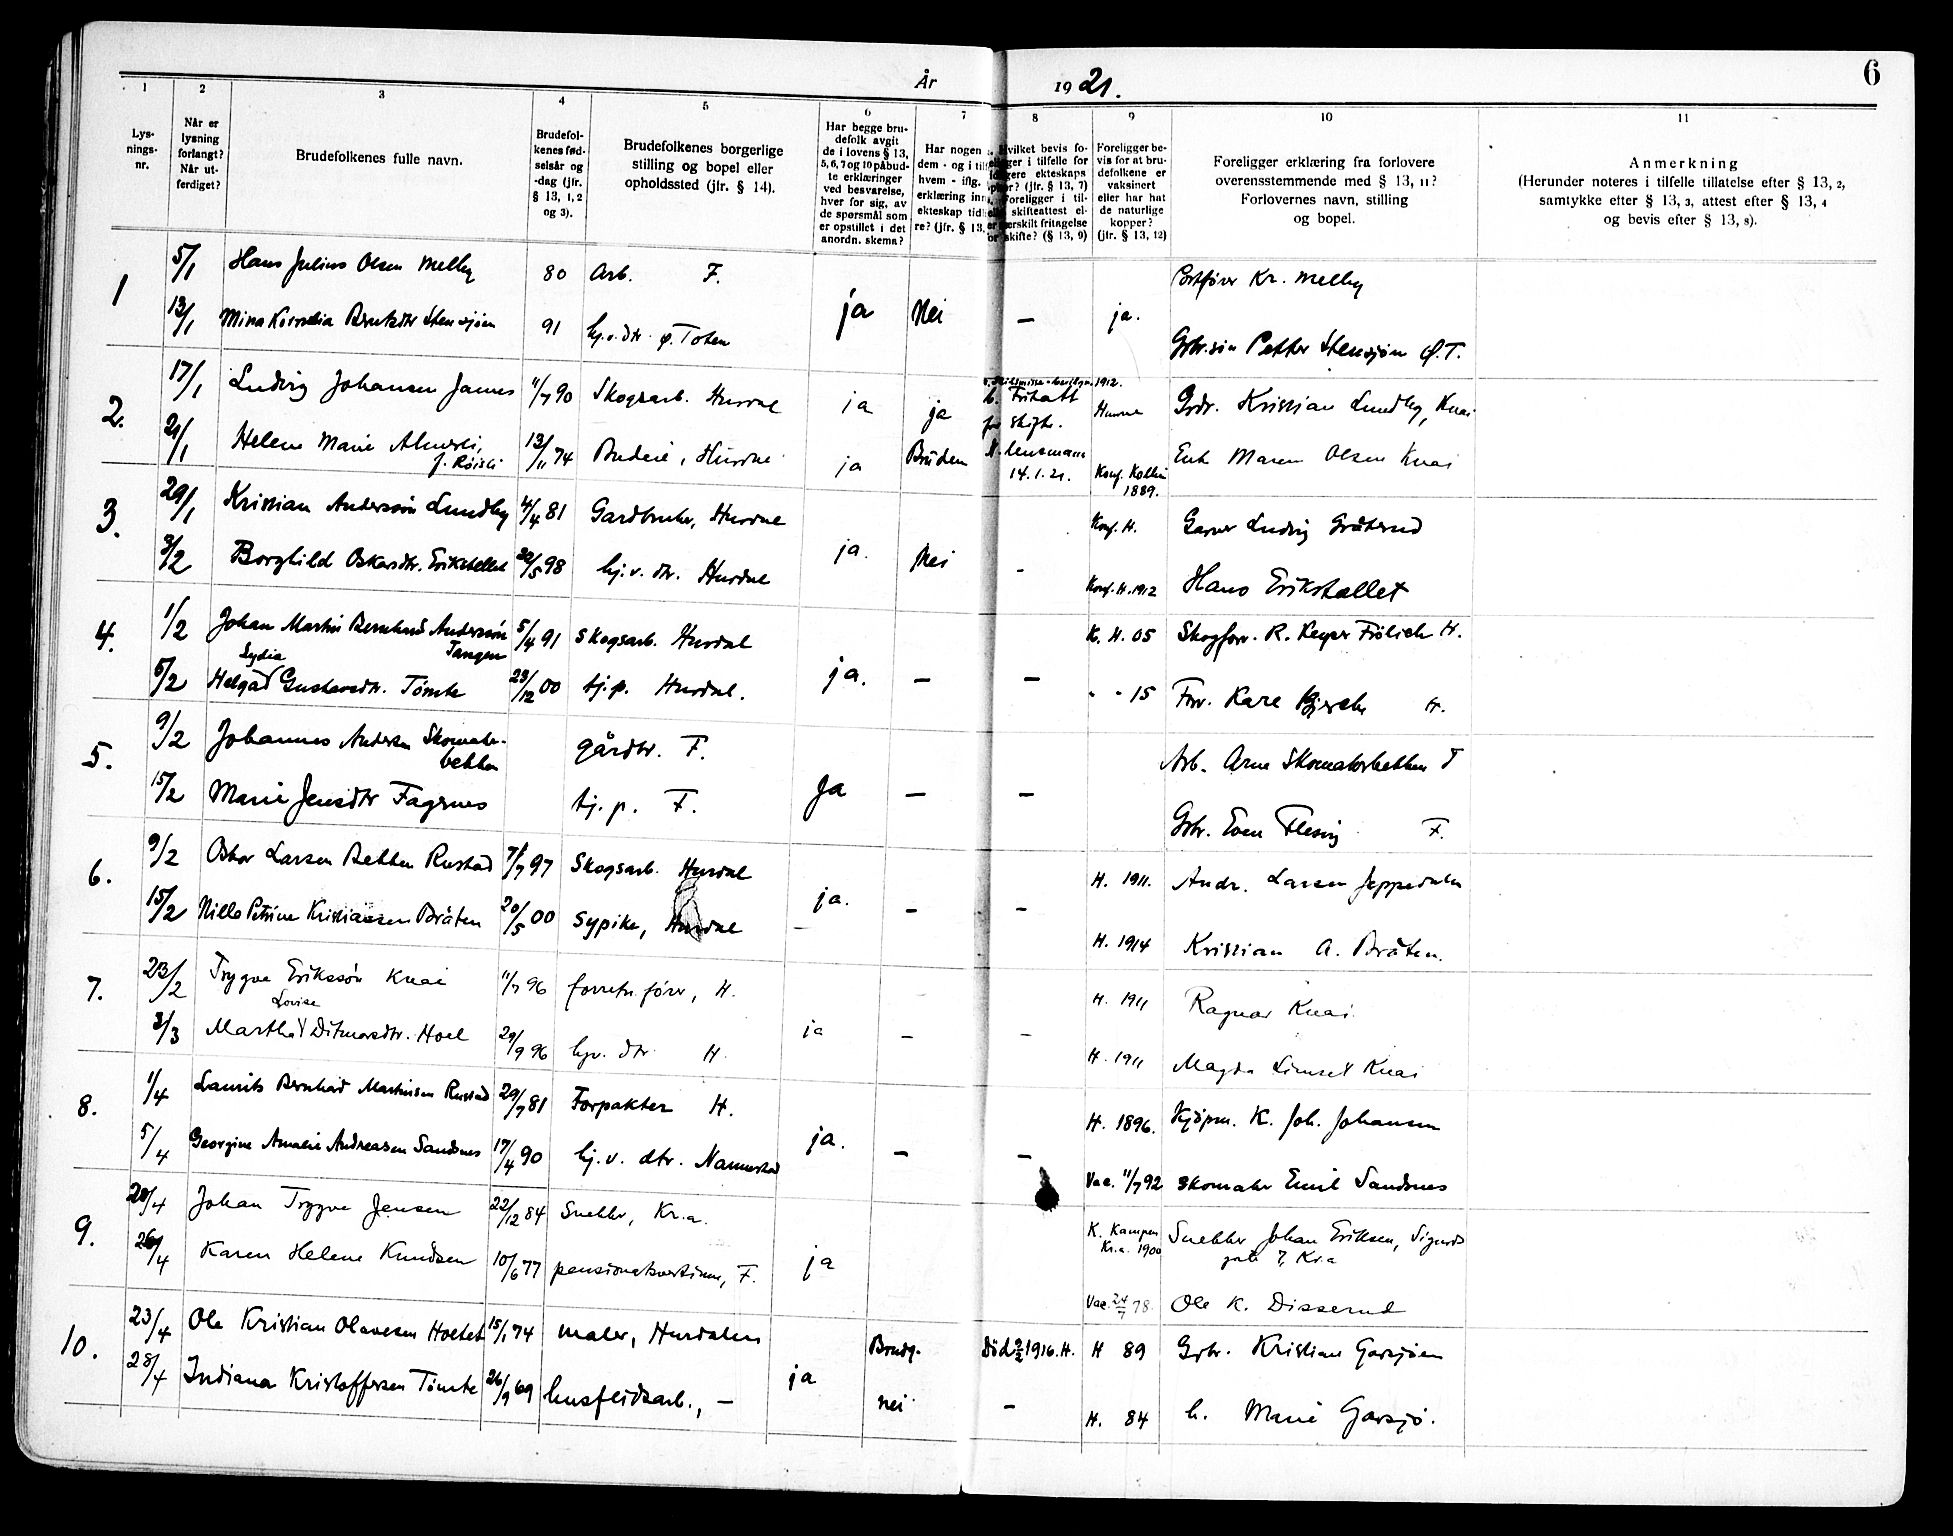 År 1921.
6
1
2
3
4
5
6
7
8
9
10
11
Lys-
nings-
nr.
Når er
lysning
forlangt?
Når ut-
ferdiget?
Brudefolkenes fulle navn.
Brudefol-
kenes fød-
selsår og
-dag (jfr.
§ 13, 1, 2
og 3).
Brudefolkenes borgerlige
stilling og bopel eller
opholdssted (jfr. § 14).
Har begge bru-
defolk avgit
de i lovens § 13,
5, 6, 7 og 10 påbud-
te erklæringer
ved besvarelse,
hver for sig, av
de spørsmål som
er opstillet i det
anordn. skema?
Har nogen
dem - og i
hvem - iflg.
erklæring
ekteskap
re? (jfr. § 13,
Hvilket bevis fo-
ger i tilfelle for
gere ekteskaps
(jfr. § 13, 7)
Foreligger i til-
skifteattest el-
særskilt fritagelse
skifte? (§ 13, 9)
Foreligger be-
vis for at bru-
defolkene er
vaksinert
eller har hat
de naturlige
kopper?
(jfr. § 13, 12)
Foreligger erklæring fra forlovere
overensstemmende med § 13, 11?
Forlovernes navn, stilling
og bopel.
Anmerkning
(Herunder noteres i tilfelle tillatelse efter § 13, 2,
samtykke efter § 13, 3, attest efter § 13, 4
og bevis efter § 13, 8).
1 5/1 Hans Julius Olsen Melby 80 Arb. F. Kr. Melby
13/1 Mina Kornelia Berntsdtr Stensjøen 91 hj.v. dtr. Ø. Toten ja Nei — ja.
Gbr.søn Petter Stensjøen Ø.T.
2. 17/1 Ludvig Johansen James 11/7 90 Skogsarb. Hurdal ja ja 1912. Fritatt for skifte. Gbr. Kristian Lundby, Knai
21/1 Helene Marie Almeli, f. Røisli 13/11 74 Budeie, Hurdal ja Bruden lensmann 14.1.21. Konf. 1889. Enk Maren Olsen Knai
3. 29/1 Kristian Anderssøn Lundby 4/4 81 Gardbruker, Hurdal Konf. H. Garver Ludvig Græterud
3/2 Borghild Oskarsdtr. Erikstellet 30/5 98 hj.v. dtr. Hurdal ja. Nei - Konf. H. 1912 Hans Erikstallet
4. 1/2 Johan Martin Bernhard Anderssøn Tangen 5/4 91 Skogsarb. Hurdal K. H. 05 Skogforv. R. Keyser Frölich H.
5/2 Helga Lydia Gustavsdtr. Tömte 23/12 00 tj.p. Hurdal. ja. — — " " 15 Forv. Kare H.
5. 9/2 Johannes Andersen Skomaker-
bekken gårdbr. F. Arb. Arne Skomakerbekken F
15/2 Marie Jensdtr Fagernes tj. p. F. Ja — — Gbr. Even Flesvig F.
6. 9/2 Oskar Larsen Bekken Rustad 7/7 97 Skogsarb. Hurdal H. 1911. Andr. Larsen Jeppedalen
15/2 Nille Petrine Kristiansen Bråten 20/5 00 Sypike, Hurdal ja. — — H. 1914 Kristian A. Bråten.
7. 23/2 Trygve Erikssön Knai 11/7 96 forretn.förer, H. H. 1911 Ragnar Knai.
3/3 Martha Lovise Ditmarsdtr. Hoel 29/9 96 hjv. dtr. H. ja — — H. 1911 Magda Limset Knai
8. 1/4 Laurits Bernhard Martinsen Rustad 29/7 81 Forpakter H. H. 1896. Kjöpm. K. Joh. Johansen
5/4 Georgine Amalie Andreassen Sandsnes 17/4 90 hj.v. dtr. Nannestad ja. — — Vac. 11/7 92 Skomaker Emil Sandsnes
9. 20/4 Johan Trygve Jensen 22/12 84 Snekker, Kr.a. K. Kampen Kr.a. 1900 Snekker Johan Eriksen, Sigurds
gate 7, Kr.a
26/4 Karen Helene Knudsen 10/6 77 pensionatvertinne, F. ja Vac. 24/7 78. Ole K. Disserud
10. 23/4 Ole Kristian Olavesen Hoetet 15/1 74 maler, Hurdalen Brudg. Död 9/2 1916. H. H 89 Gbr. Kristian Garsjöen
28/4 Indiana Kristoffersen Tömte 26/9 69 husflidsarb., — ja nei — H. 84 h. Marie Garsjö.